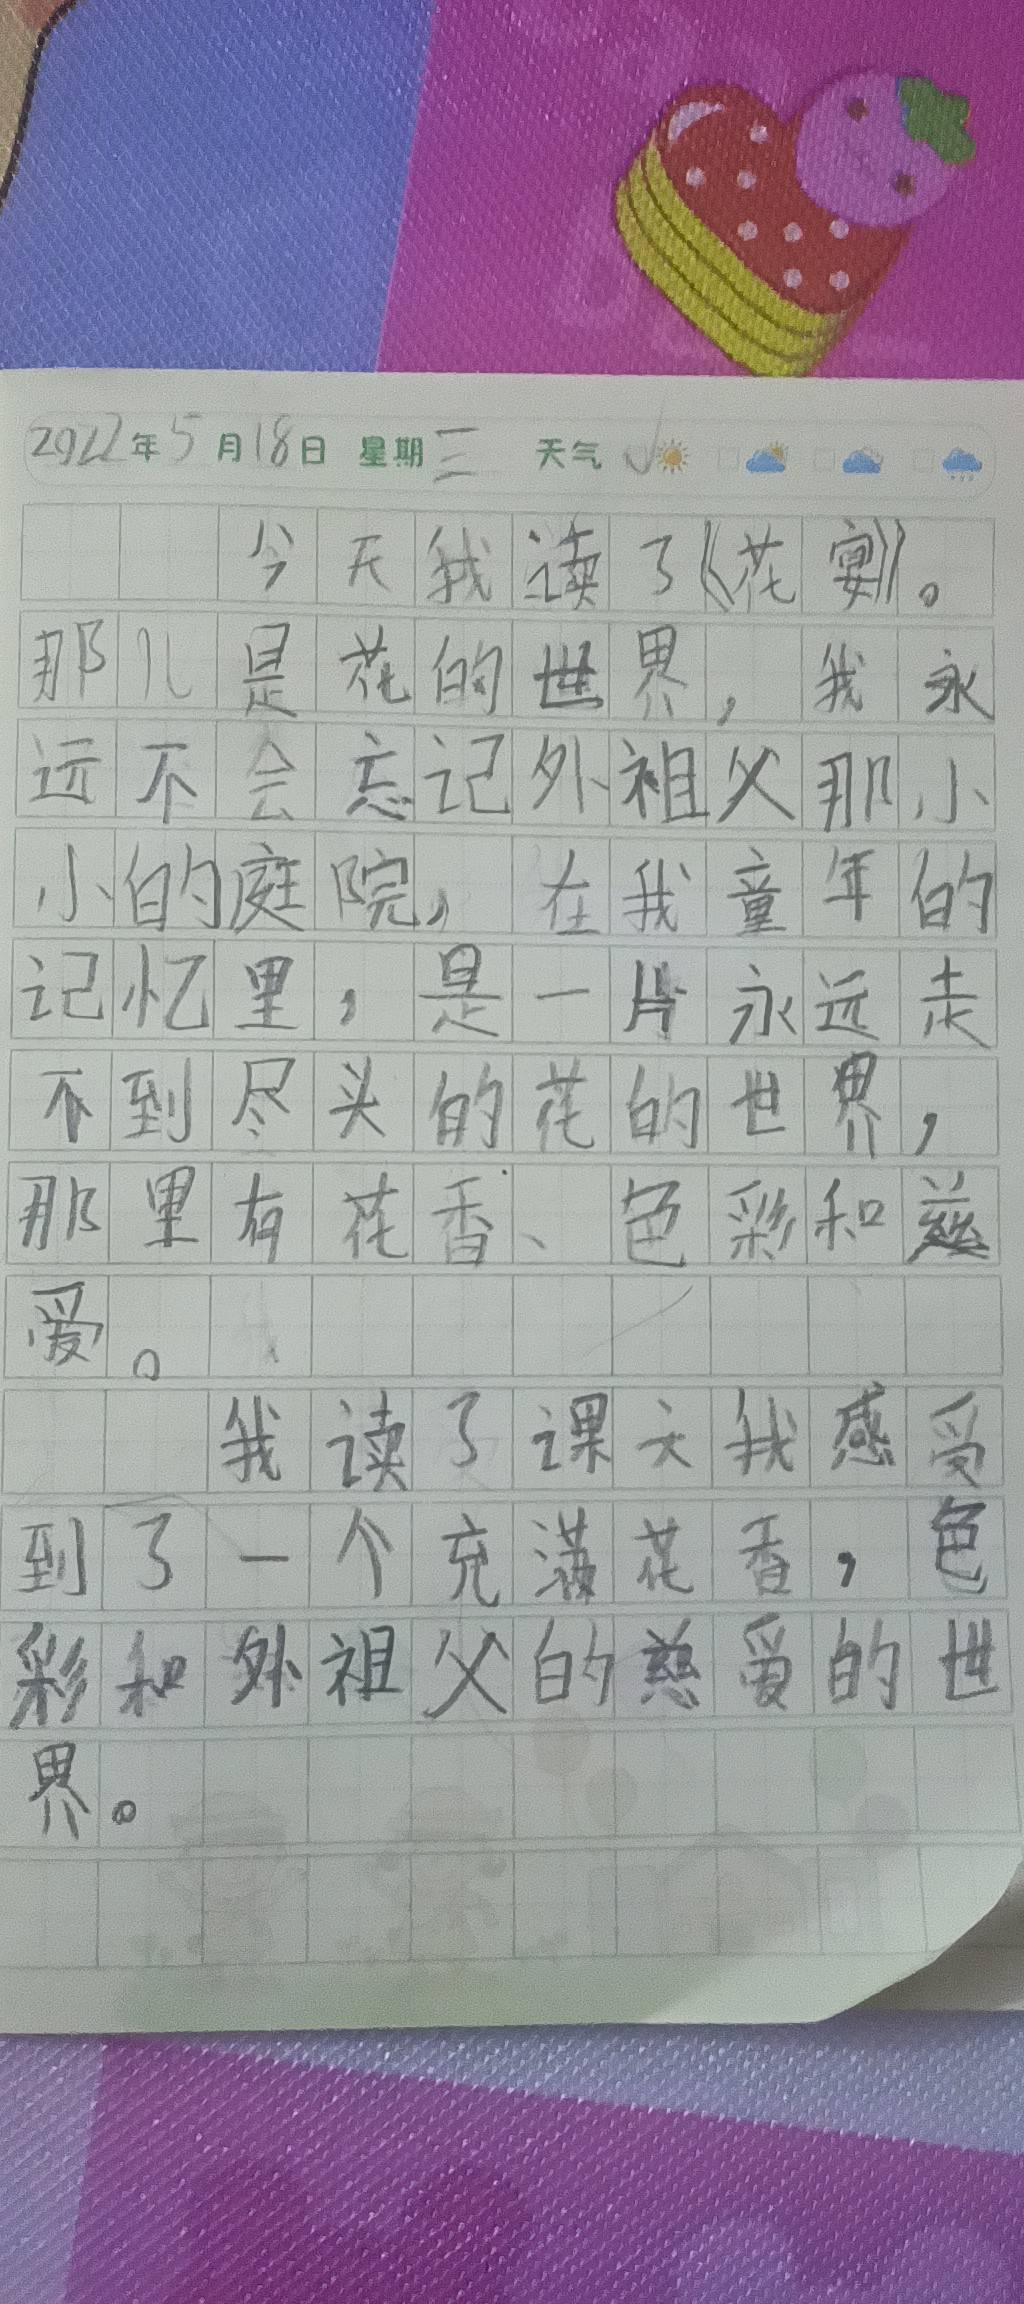 2022年5月18日 星期三 天气 ✓
今天我读了《花宴》。
那儿是花的世界，我永
远不会忘记外祖父那小
小的庭院，在我童年的
记忆里，是一片永远走
不到尽头的花的世界，
那里有花香、色彩和慈
爱。
我读了课文我感受
到了一个充满花香，色
彩和外祖父的慈爱的世
界。